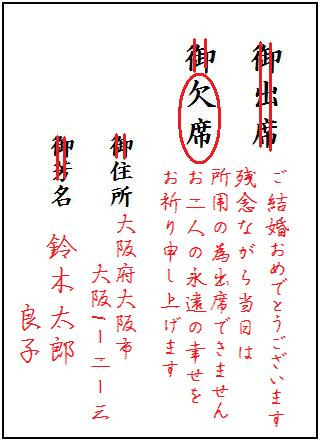 御出席
御欠席
ご結婚おめでとうございます
残念ながら当日は
所用の為出席できません
お二人の永遠の幸せを
お祈り申し上げます
御住所
大阪府大阪市
大阪一ー二ー三
御芳名
鈴木太郎
良子